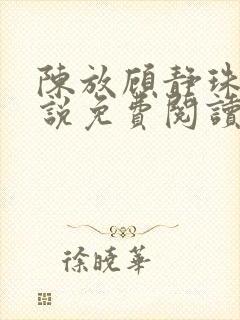 陳放顧靜珠
說免費閱讀
徐曉華